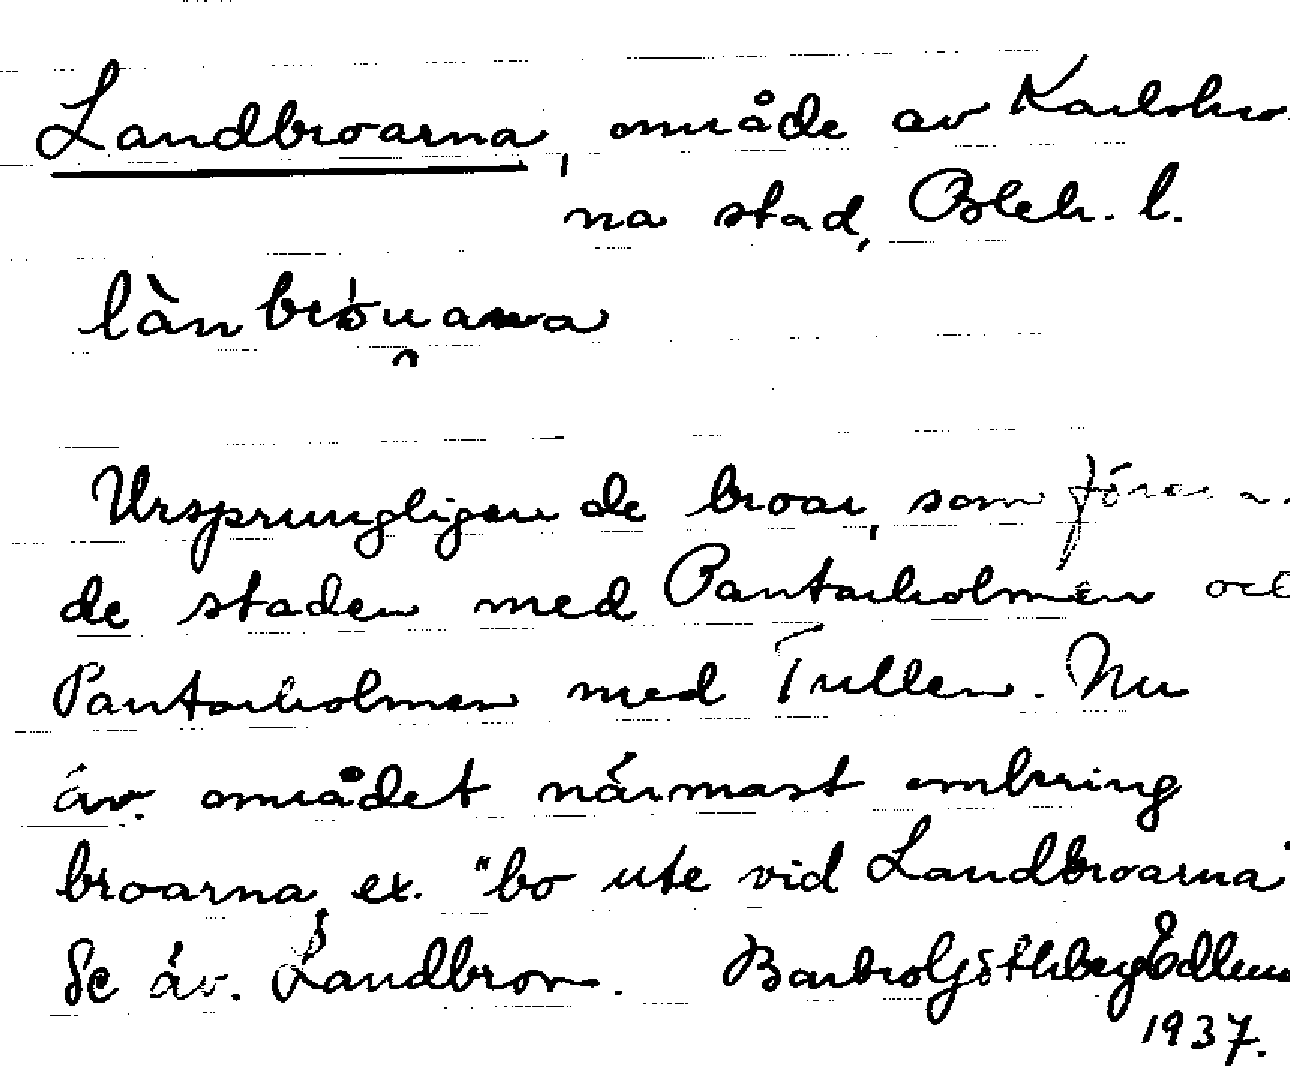 Landbroarna, område av Karlskro-
na stad, Blek. l.
Ursprungligen de broar, som
de staden med Pantarholmen och
Pantarholmen med Tullen. Nu
äv. området närmast omkring
broarna, ex. "bo ute vid Landbroarna"
Se äv. Landbron. Barbro Göthberg Edlund
1937.